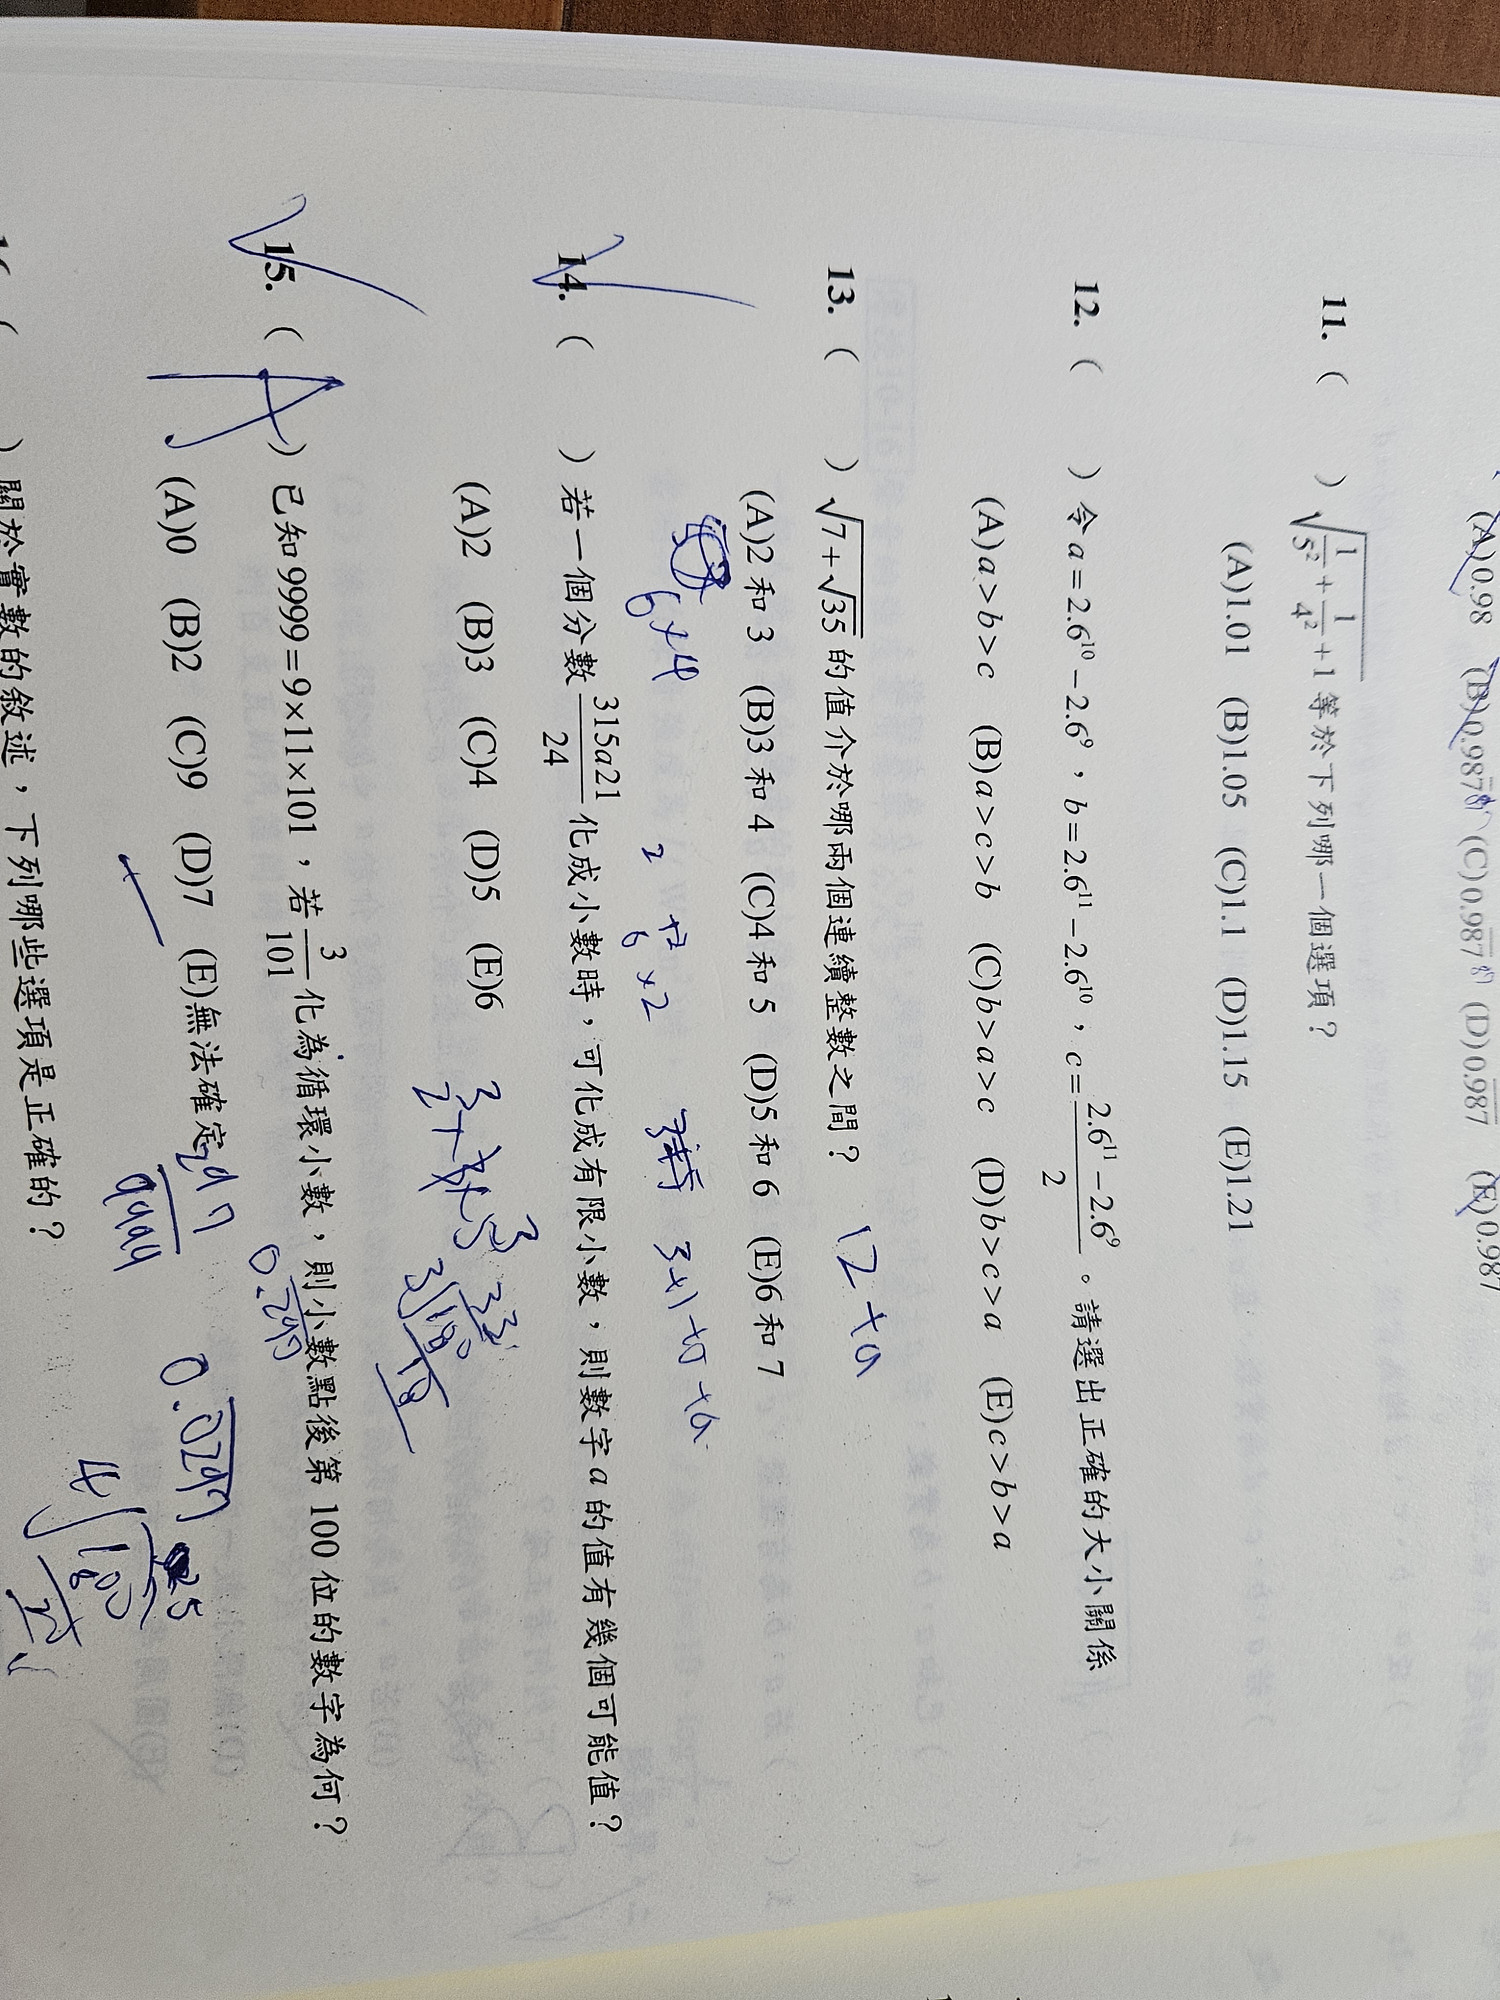 (A)0.98 (B)0.987 (C)0.987 (D)0.987 (E)0.987
11. ( ) √(1/5² + 1/4² + 1) 等於下列哪一個選項？
(A)1.01 (B)1.05 (C)1.1 (D)1.15 (E)1.21
12. ( ) 令 a = 2.6¹⁰ − 2.6⁹，b = 2.6¹¹ − 2.6¹⁰，c = (2.6¹¹ − 2.6⁹)/2。請選出正確的大小關係
(A)a>b>c (B)a>c>b (C)b>a>c (D)b>c>a (E)c>b>a
13. ( ) √(7+√35) 的值介於哪兩個連續整數之間？
(A)2 和 3 (B)3 和 4 (C)4 和 5 (D)5 和 6 (E)6 和 7
12+a
6×4
2
6×2
3+1+5+a
14. ( ) 若一個分數 315a21/24 化成小數時，可化成有限小數，則數字 a 的值有幾個可能值？
(A)2 (B)3 (C)4 (D)5 (E)6
33
3 100
15. ( A ) 已知 9999=9×11×101，若 3/101 化為循環小數，則小數點後第 100 位的數字為何？
(A)0 (B)2 (C)9 (D)7 (E)無法確定
297
9999
0.297
0.0297
25
4 100
( ) 關於實數的敘述，下列哪些選項是正確的？